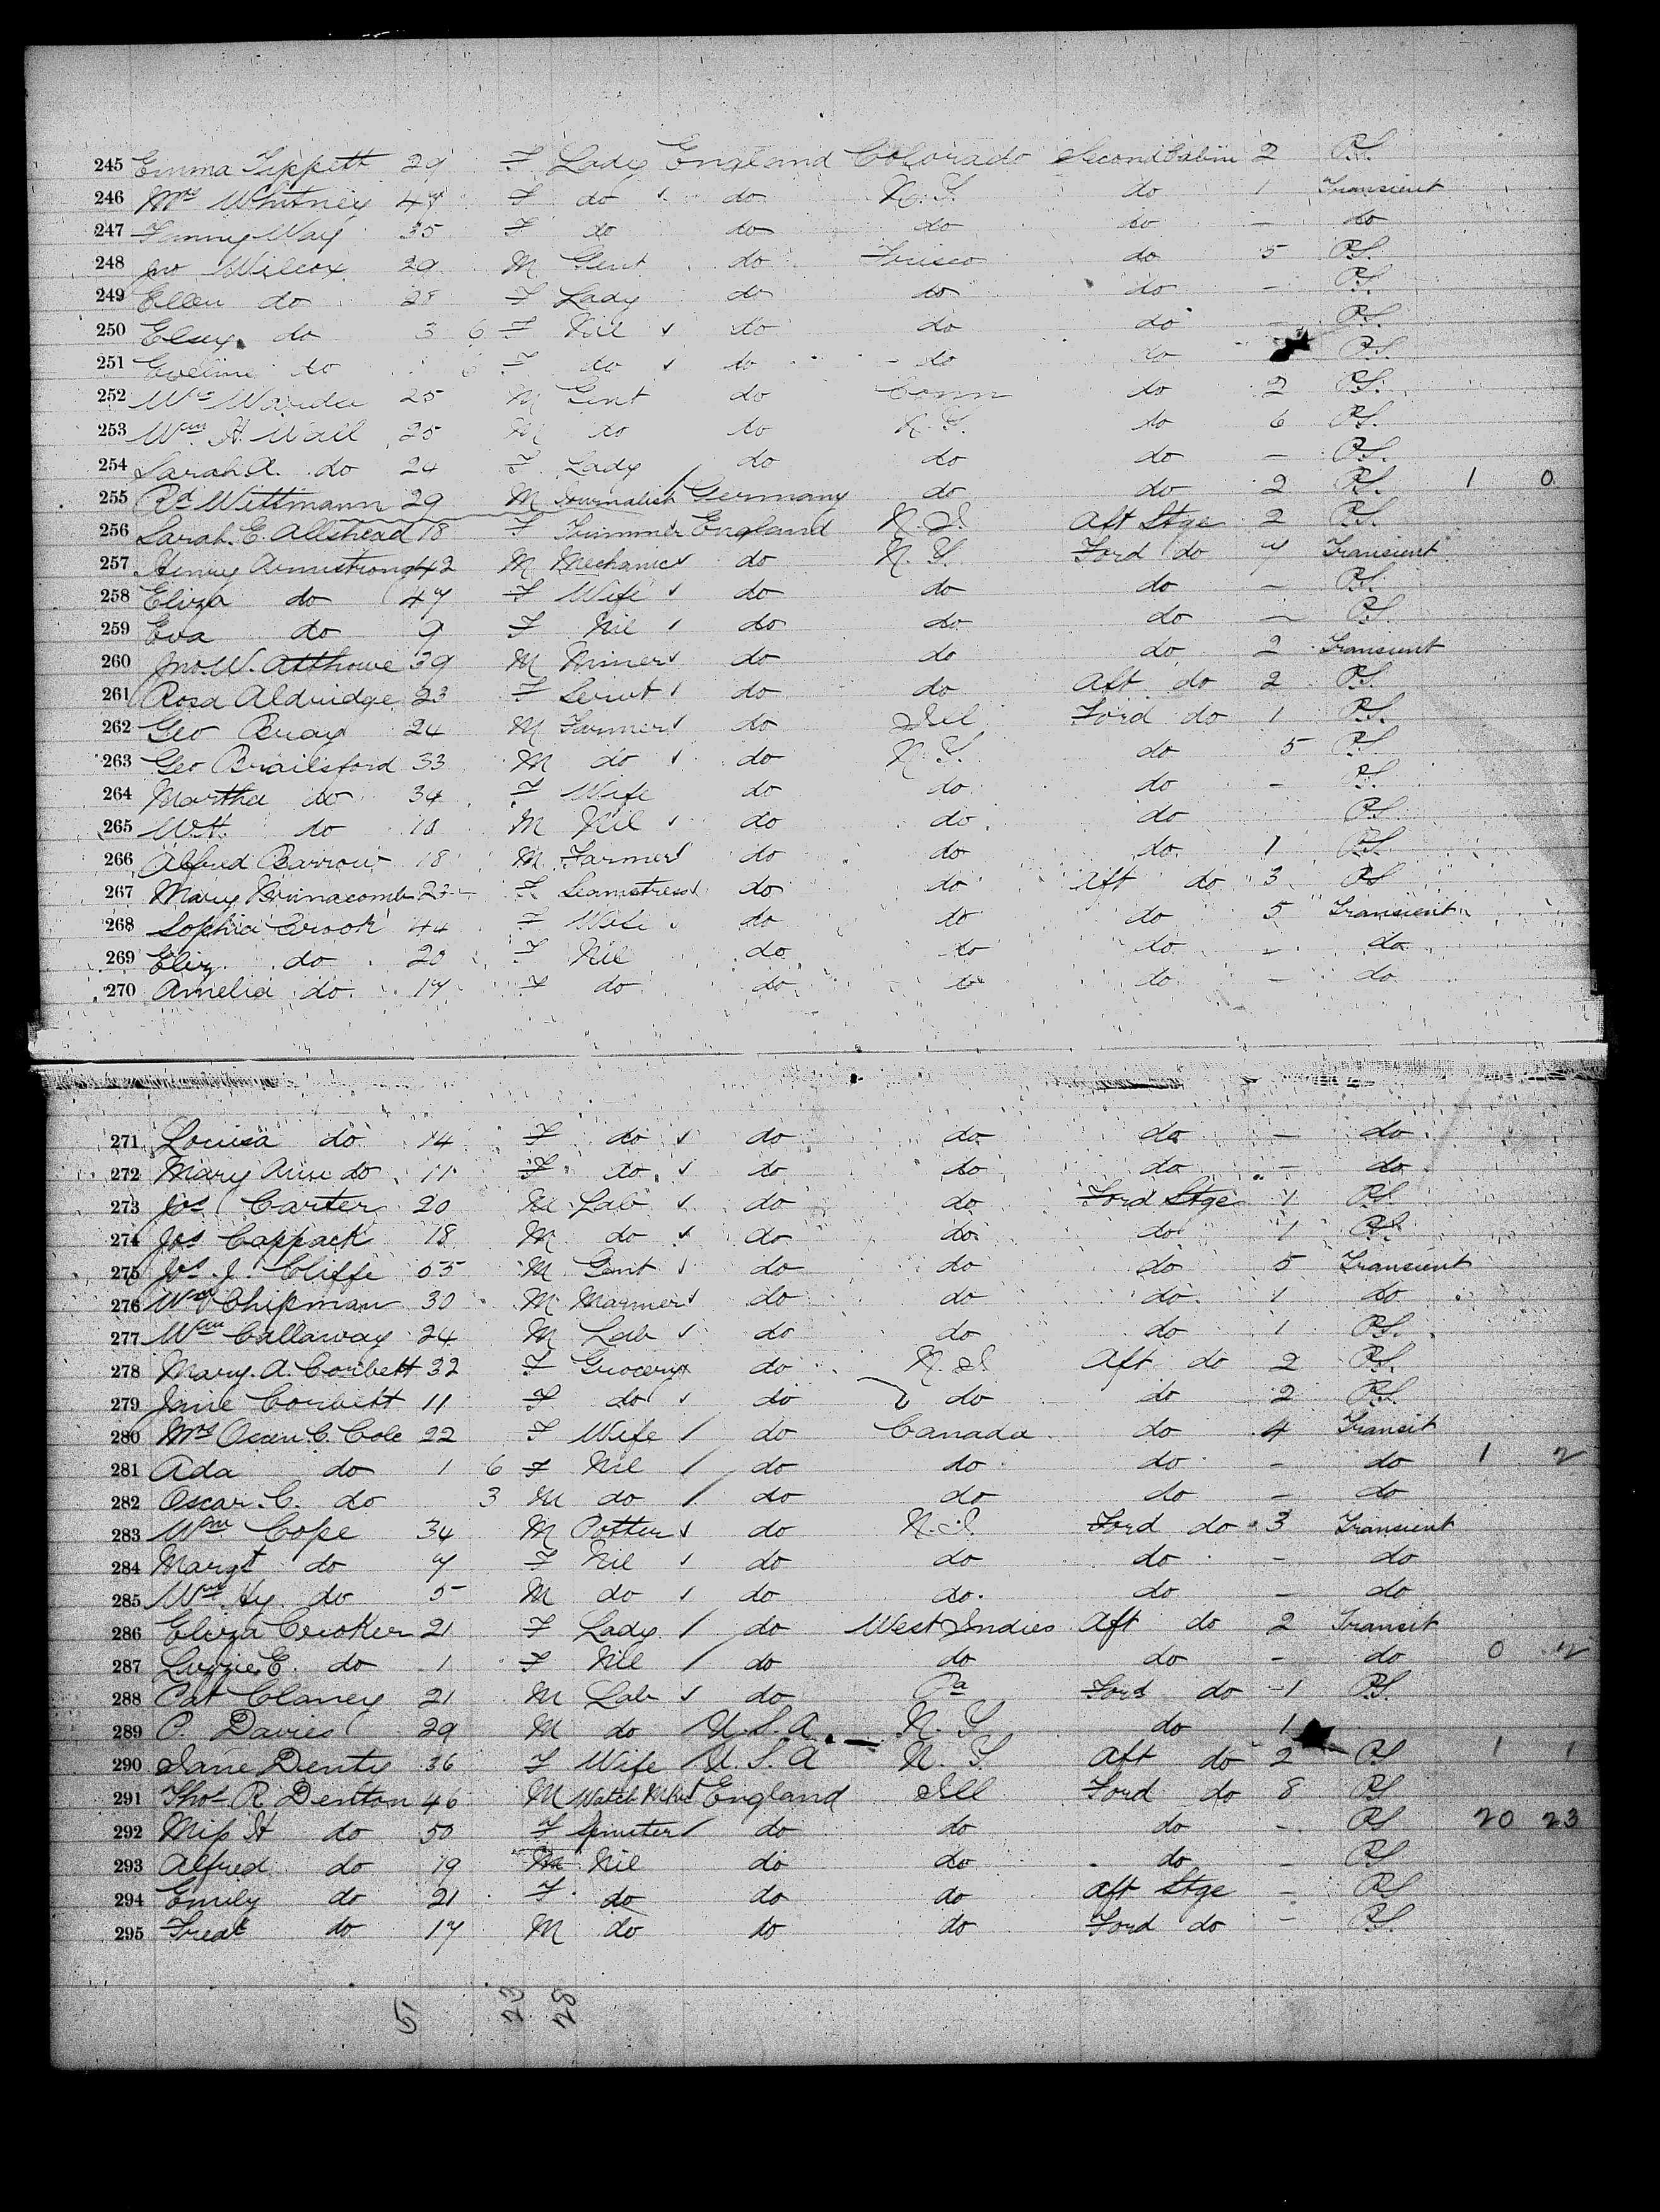 245 Emma Tippett 29 F Lady England Colorado Second Cabin 2 P.S.
246 Mrs Whitney 47 F do do N.Y. do 1 Transient
247 Fanny Way 35 F do do do do — do
248 Jno Wilcox 29 M Gent do Frisco do 5 P.S.
249 Ellen do 28 F Lady do do do — P.S.
250 Elsey do 3 6 F Nil do do do — P.S.
251 Eveline do 6 F do do do do P.S.
252 Wm 25 M Gent do Conn do 2 P.S.
253 Wm H. Wall 25 M do do N.Y. do 6 P.S.
254 Sarah A. do 24 F Lady do do do — P.S.
255 Rd Wittmann 29 M Journalist Germany do do 2 P.S. 1 0
256 Sarah E. Allshead 18 F Trimmer England N.J. Aft Stge 2 P.S.
257 Henry Armstrong 42 M Mechanic do N.Y. Ford do 7 Transient
258 Eliza do 47 F Wife do do do — P.S.
259 Eva do 9 F Nil do do do — P.S.
260 Jno. W. Atthowe 39 M Miner do do do 2 Transient
261 Rosa Aldridge 23 F Servt do do Aft do 2 P.S.
262 Geo Bray 24 M Farmer do Ill Ford do 1 P.S.
263 Geo Brailsford 33 M do do N.Y. do 5 P.S.
264 Martha do 34 F Wife do do do — P.S.
265 W.H. do 10 M Nil do do do P.S.
266 Alfred Barrow 18 M Farmer do do do 1 P.S.
267 Mary Brinacomb 23 F Seamstress do do Aft do 3 P.S.
268 Sophia Crook 44 F Wife do do do 5 Transient
269 Eliz do 20 F Nil do do do — do
270 Amelia do 17 F do do do do — do
271 Louisa do 14 F do do do do — do
272 Mary Ann do 11 F do do do do — do
273 Jos Carter 20 M Lab do do Ford Stge 1 P.S.
274 Jos Cappack 18 M do do do do 1 P.S.
275 Jos. J. Cliffe 55 M Gent do do do 5 Transient
276 Wm Chipman 30 M Mariner do do do 1 do
277 Wm Callaway 24 M Lab do do do 1 P.S.
278 Mary A. Corbett 32 F Grocery do N.J. Aft do 2 P.S.
279 Jane Corbett 11 F do do do do 2 P.S.
280 Mrs Oscar C. Cole 22 F Wife do Canada do 4 Transit
281 Ada do 1 6 F Nil do do do — do 1 2
282 Oscar C. do 3 M do do do do — do
283 Wm Cope 34 M Potter do N.J. Ford do 3 Transient
284 Margt do 7 F Nil do do do — do
285 Wm Hy do 5 M do do do do — do
286 Eliza Croker 21 F Lady do West Indies Aft do 2 Transit
287 Lizzie E. do 1 F Nil do do do — do 0 2
288 Pat Clancy 21 M Lab do Pa Ford do 1 P.S.
289 P. Davies 29 M do U.S.A. N.Y. do 1
290 Jane Denty 36 F Wife U.S.A N.Y. Aft do 2 P.S 1 1
291 Thos R Denton 46 M Watch Mkr England Ill Ford do 8 P.S
292 Miss H do 50 F Spinster do do do — P.S 20 23
293 Alfred do 19 M Nil do do do — P.S
294 Emily do 21 F do do do Aft Stge — P.S
295 Fredk do 17 M do do do Ford do — P.S
51 23 28